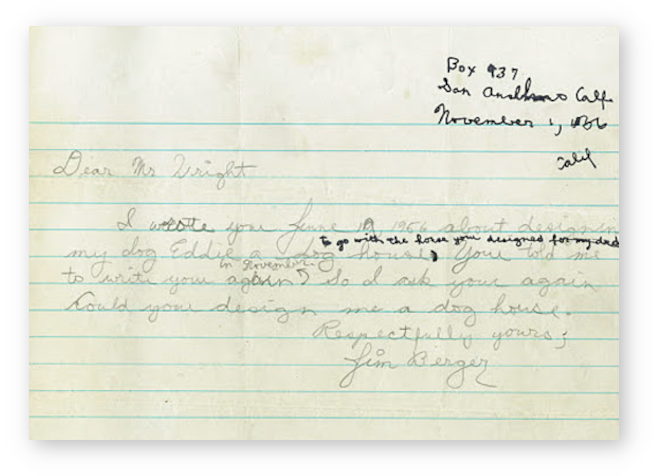 Box 437
San Anselmo Calf
November 1, 1956
Calif
Dear Mr Wright
I wrote you June 19 1956 about designin
to go with the house you designed for my dad
my dog Eddie a dog house, You told me
in November.
to write you again, So I ask you again
Could you design me a dog house.
Respectfully yours;
Jim Berger